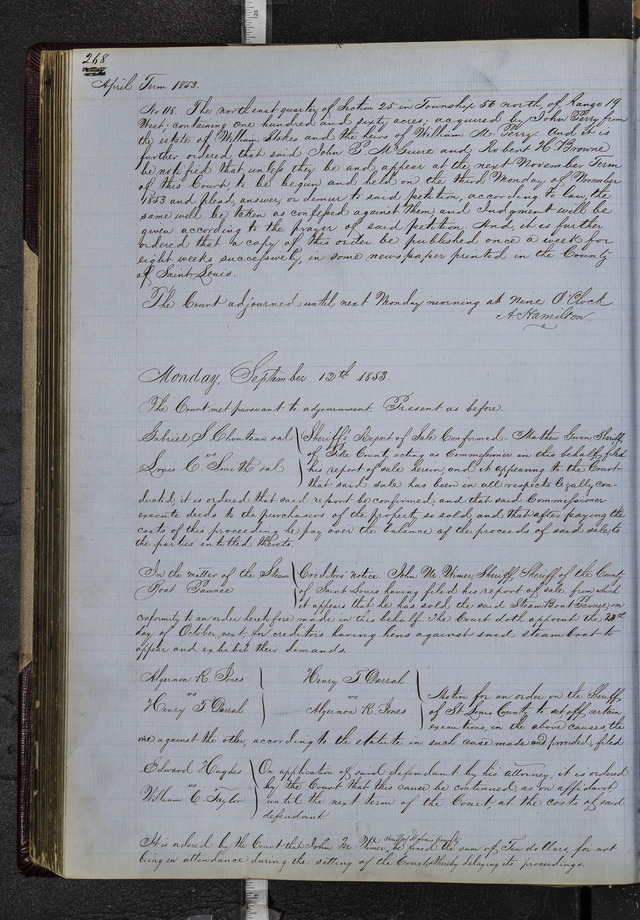 268
April Term 1853.
No 118. The north east quarter of Section 25 in Township 56 north, of Range 19
West; containing one hundred and sixty acres; acquired by John Perry from
the estate of William Stokes and the heirs of William M. Perry. And it is
further ordered that said John P. McGuire and Robert H Browne
be notified that unless they be and appear at the next November Term
of this Court to be begun and held on the third Monday of November
1853 and plead, answer, or demur to said petition, according to law, the
same will be taken as confessed against them, and Judgment will be
given according to the prayer of said petition. And, it is further
ordered that a copy of this order be published once a week for
eight weeks successively, in some newspaper printed in the County
of Saint Louis.
The Court adjourned until next Monday morning at Nine O'Clock
A Hamilton.
Monday, September 12th 1853
The Court met pursuant to adjournment. Present as before.
Gabriel S Chouteau et al
vs
Louis C Smith et al
Sheriff's Report of Sale Confirmed. Mathew Given Sheriff
of Pike County, acting as Commissioner in this behalf, filed
his report of sale herein, and it appearing to the Court
that said sale has been in all respects legally con-
ducted, it is ordered that said report be confirmed, and that said Commissioner
execute deeds to the purchasers of the property so sold, and that after paying the
costs of this proceeding he pay over the balance of the proceeds of said sale to
the parties entitled thereto.
In the matter of the Steam
Boat Pawnee
Creditors' notice. John M. Wimer, Sheriff, Sheriff of the County
of Saint Louis having filed his report of sale, from which
it appears that he has sold the said Steam Boat Pawnee, in
conformity to an order heretofore made in this behalf. The Court doth appoint the
day of October next for creditors having liens against said steam boat to
appear and exhibit their demands.
Algernon R. Jones
vs
Henry T Darrah
Henry T Darrah
vs
Algernon R. Jones
Motion for an order on the Sheriff
of St Louis County to set off certain
executions, in the above causes the
one against the other, according to the statute in such case made and provided, filed
Edward Hughes
vs
William C. Taylor
On application of said defendant by his attorney, it is ordered
by the Court that this cause be continued, as on affidavit
until the next term of the Court, at the costs of said
defendant
It is ordered by the Court that John M. Wimer, be fined the sum of Ten dollars, for not
being in attendance during the sitting of the Court, thereby delaying its proceedings.